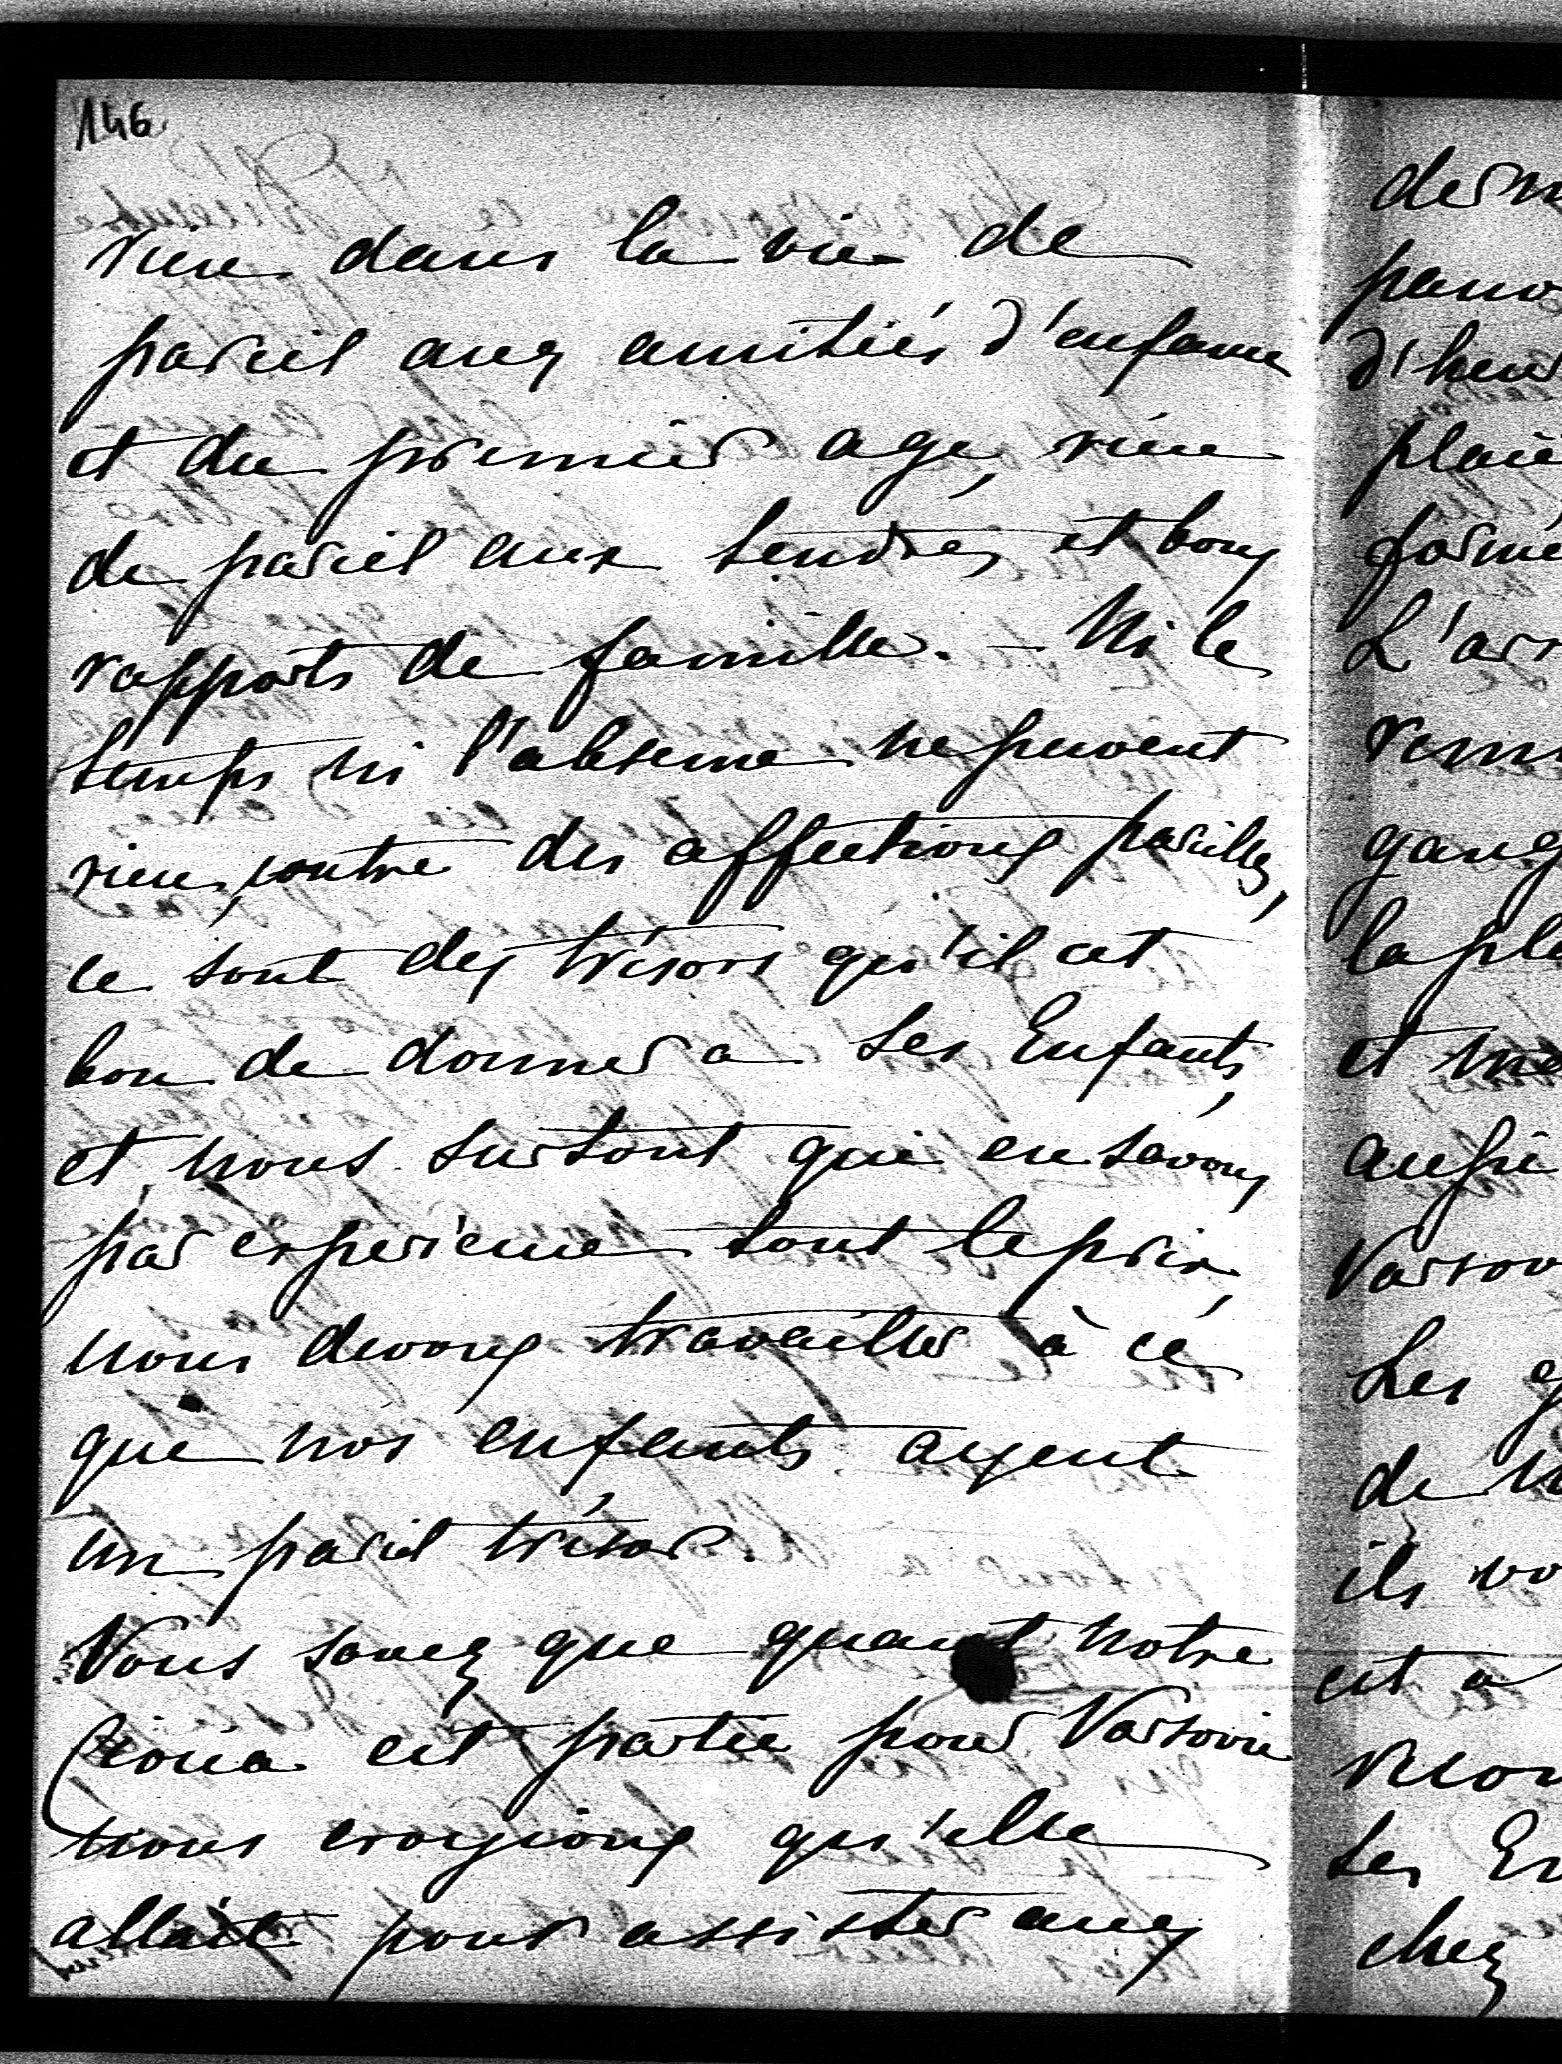 146.
rien dans la vie de
pareil aux amitiés d'enfance
et du premier age, rien
de pareil aux tendres et bons
rapports de famille. — Ni le
temps ni l'absence ne peuvent
rien contre des affections pareilles,
ce sont des trésors qu'il est
bon de donner a ses Enfants,
et nous surtout qui en savons
par experience tout le prix,
nous devons travailler à ce
que nos enfants ayent
un pareil trésor.
Vous savez que quant notre
est partie pour Varsovie
nous croyions qu'elle
allait pour assister aux
der
pauv
d'heur
plai
formé
L'arr
rem
gang
la pl
et
aussi
Varsov
Les
de
ils vo
est a
ses En
chez